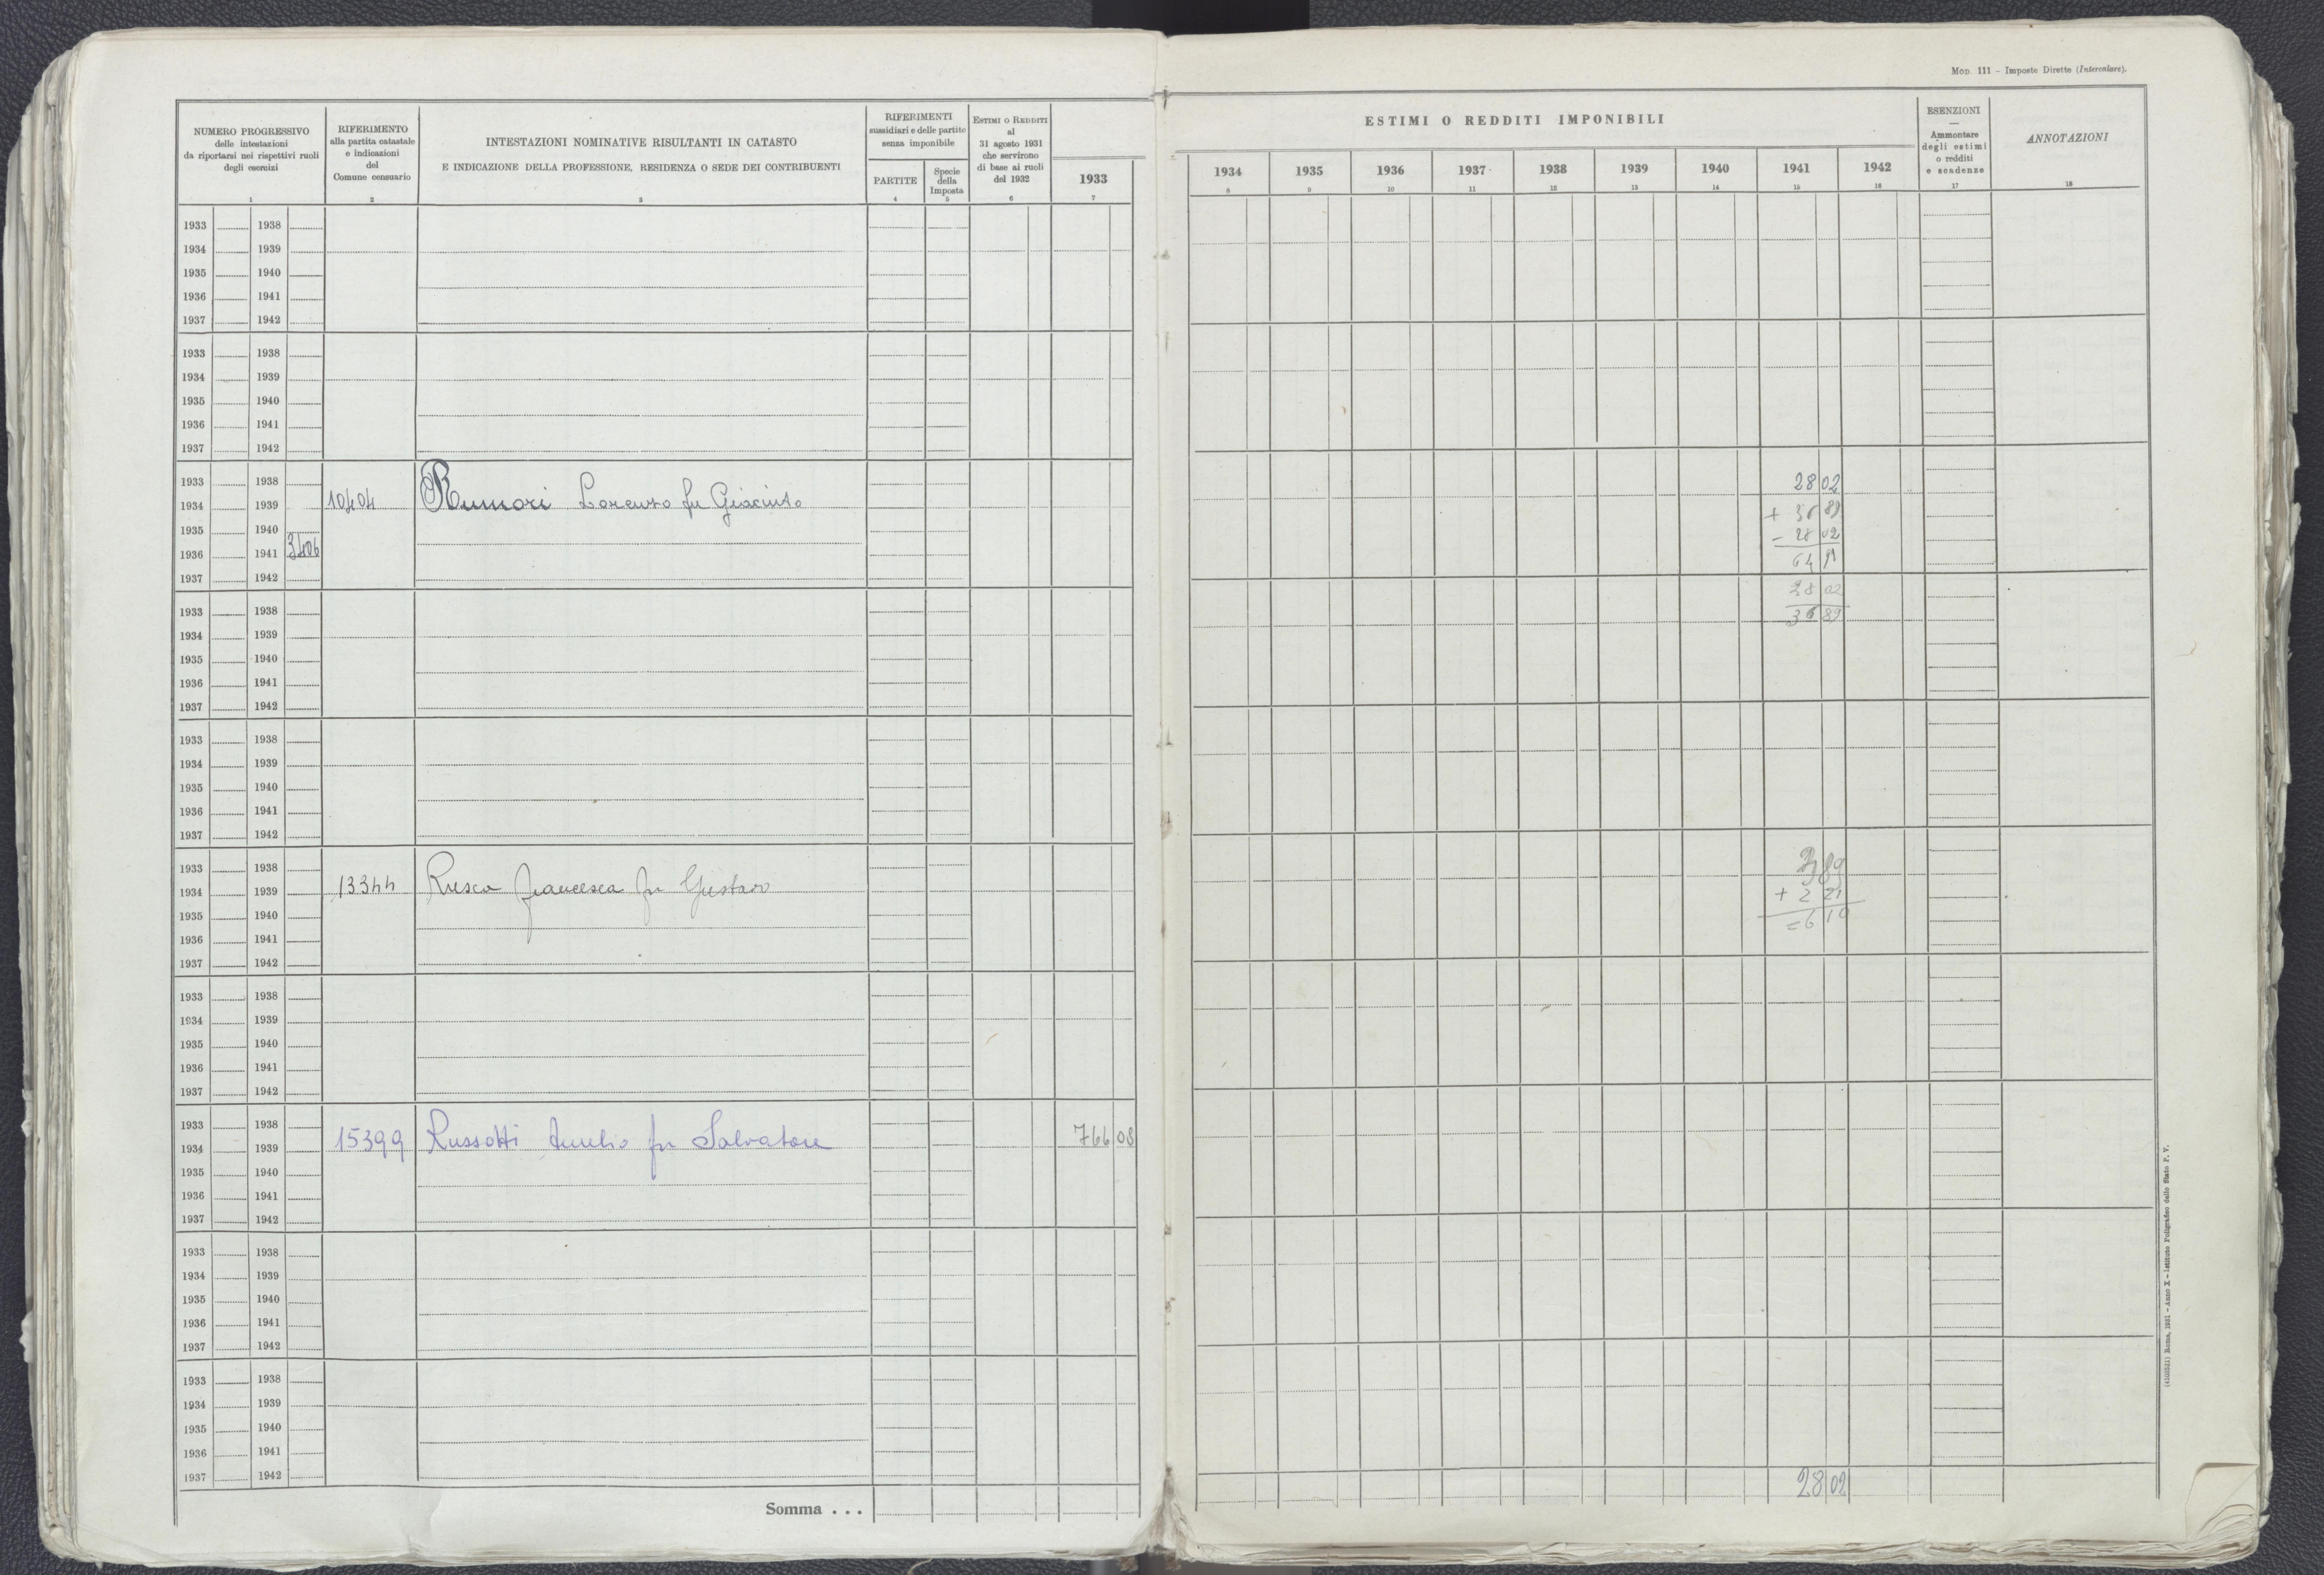 Mod. 111 – Imposte Dirette (Intercalare).
NUMERO PROGRESSIVO
delle intestazioni
da riportarsi nei rispettivi ruoli
degli esercizi
1
RIFERIMENTO
alla partita catastale
e indicazioni
del
Comune censuario
2
INTESTAZIONI NOMINATIVE RISULTANTI IN CATASTO
E INDICAZIONE DELLA PROFESSIONE, RESIDENZA O SEDE DEI CONTRIBUENTI
3
RIFERIMENTI
sussidiari e delle partite
senza imponibile
PARTITE
4
Specie
della
Imposta
5
ESTIMI O REDDITI
al
31 agosto 1931
che servirono
di base ai ruoli
del 1932
6
ESTIMI O REDDITI IMPONIBILI
1933 1934 1935 1936 1937 1938 1939 1940 1941 1942
7 8 9 10 11 12 13 14 15 16
ESENZIONI
—
Ammontare
degli estimi
o redditi
e scadenze
17
ANNOTAZIONI
18
1933 1938
1934 1939
1935 1940
1936 1941
1937 1942
1933 1938
1934 1939
1935 1940
1936 1941
1937 1942
1933 1938 28 02
1934 1939 10404 Rumori Lorenzo fu Giacinto
+ 36 89
1935 1940
− 28 02
1936 1941 3406
64 91
1937 1942
28 02
1933 1938
36 89
1934 1939
1935 1940
1936 1941
1937 1942
1933 1938
1934 1939
1935 1940
1936 1941
1937 1942
1933 1938 3 89
1934 1939 13344 Rusca Francesca fu Gustavo
+ 2 21
1935 1940
= 6 10
1936 1941
1937 1942
1933 1938
1934 1939
1935 1940
1936 1941
1937 1942
1933 1938
1934 1939 15399 Russotti Aurelio fu Salvatore 766 08
1935 1940
1936 1941
1937 1942
1933 1938
1934 1939
1935 1940
1936 1941
1937 1942
1933 1938
1934 1939
1935 1940
1936 1941
1937 1942
Somma . . . 28 02
Roma, 1931 – Anno X – Istituto Poligrafico dello Stato P. V.